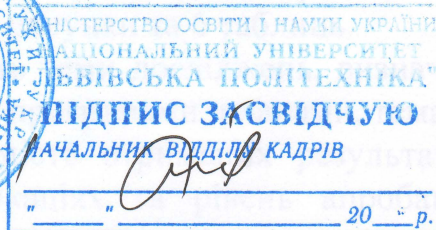 МІНІСТЕРСТВО ОСВІТИ І НАУКИ УКРАЇНИ
НАЦІОНАЛЬНИЙ УНІВЕРСИТЕТ
ЛЬВІВСЬКА ПОЛІТЕХНІКА"
ПІДПИС ЗАСВІДЧУЮ
НАЧАЛЬНИК ВІДДІЛУ КАДРІВ
"____"____________ 20___ р.